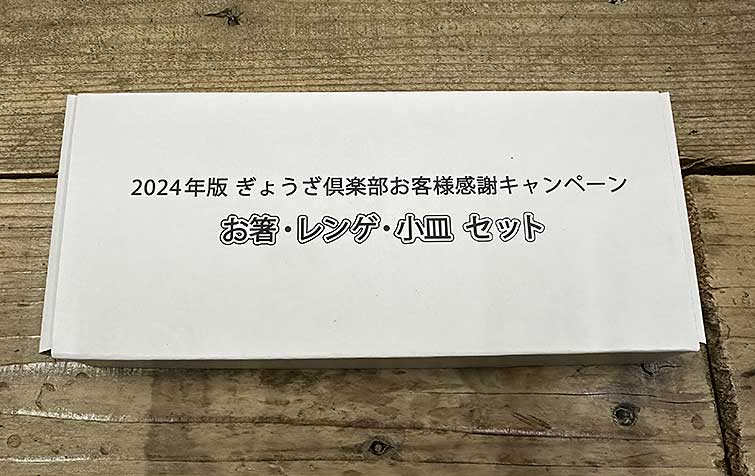 2024年版 ぎょうざ倶楽部お客様感謝キャンペーン
お箸・レンゲ・小皿 セット